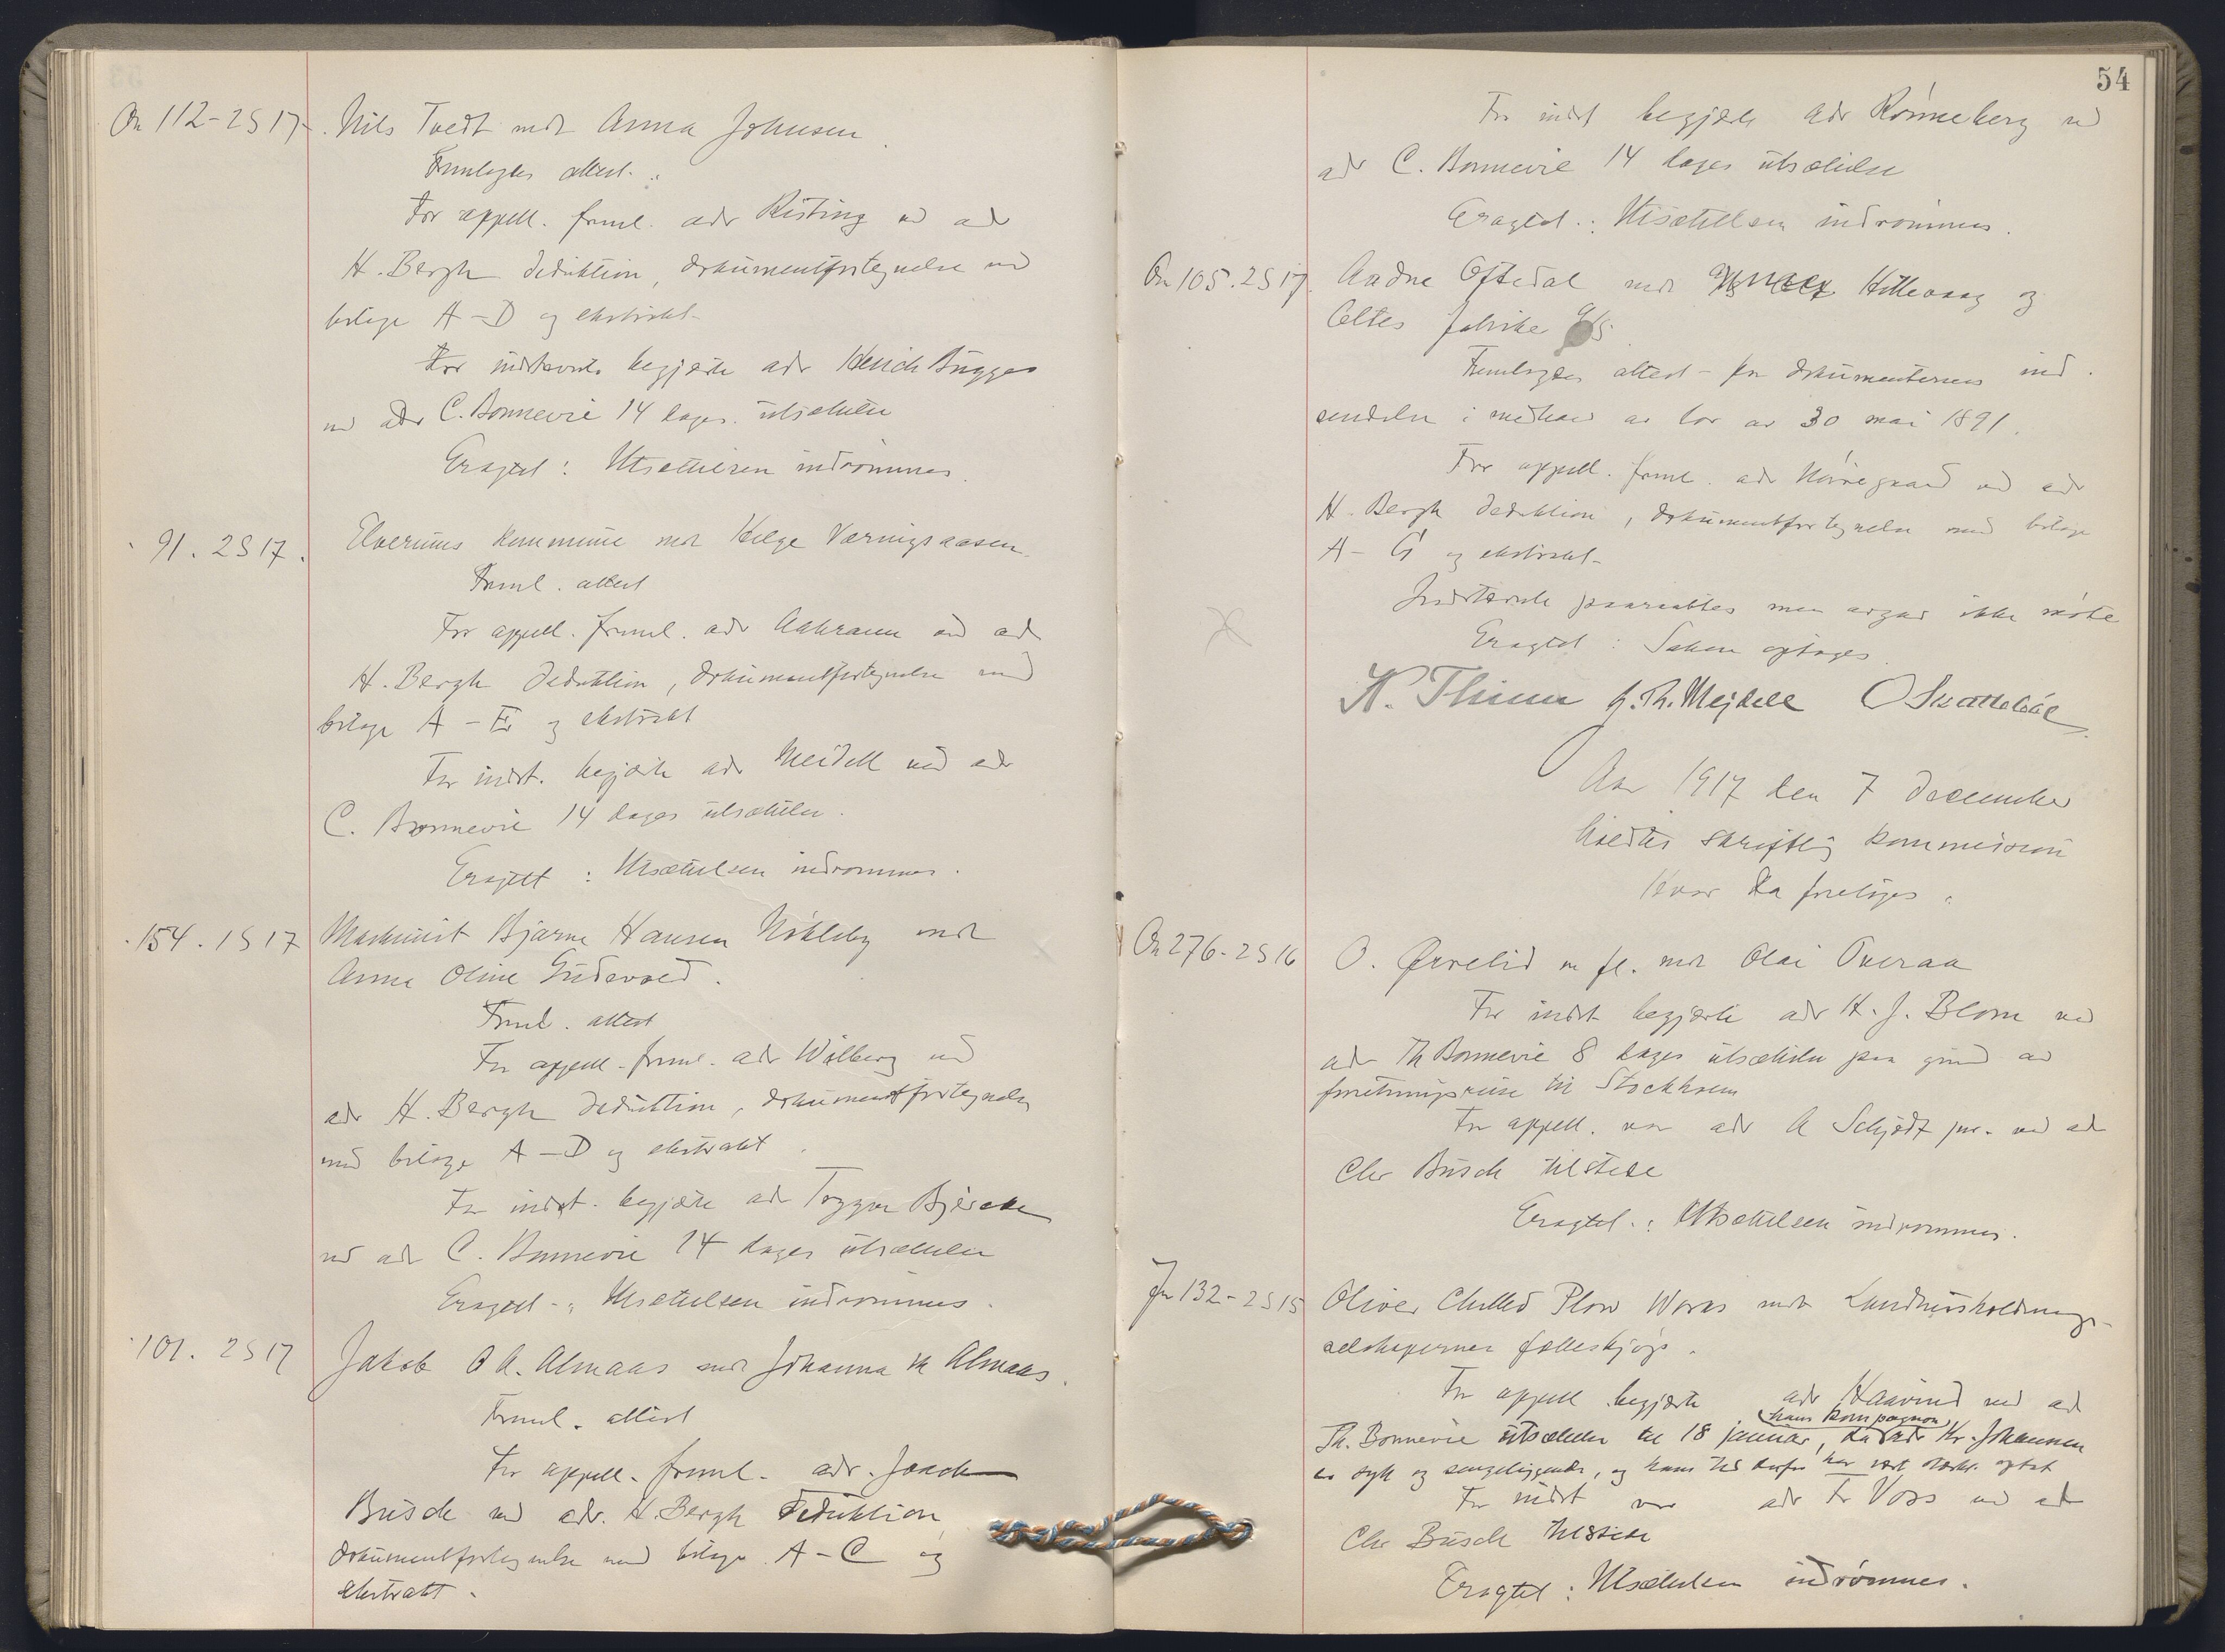 On 112-2S17. Nils Tvedt mot Anna Johnsen.
Fremlagdes attest.
For appell. freml. adv Risting ved adv
H. Bergh deduktion, dokumentfortegnelse med
bilage A-D og ekstrakt
For indstevnte begjærte adv Henrik Bugge
ved adv C. Bonnevie 14 dages utsættelse
Eragtet: Utsættelsen indrømmes.
91. 2S17. Elverums kommune mot Helge Væringsaasen.
Freml. attest
For appell. freml. adv Aakrann ved adv
H. Bergh deduktion, dokumentfortegnelse med
bilage A-E og ekstrakt
For indst. begjærte adv Meidell ved adv
C. Bonnevie 14 dages utsættelse.
Eragtet: Utsættelsen indrømmes.
154. 1S17 Maskinist Bjarne Hansen Nökleby mot
Anna Oline Gudevold.
Freml. attest
For appell. freml. adv Wålberg ved
adv H. Bergh deduktion, dokumentfortegnelse
med bilage A-D og ekstrakt.
For indst. begjærte adv Trygve Bjercke
ved adv C. Bonnevie 14 dages utsættelse
Eragtet: Utsættelsen indrømmes.
101. 2S17 Jakob O A. Almaas mot Johanna M Almaas.
Freml. attest
For appell. freml. adv. Joach
Busch ved adv. H. Bergh deduktion
dokumentfortegnelse med bilage A-C og
ekstrakt.
54
For indst begjærte adv Rönneberg ved
adv C. Bonnevie 14 dages utsættelse
Eragtet: Utsættelsen indrömmes.
On 105. 2S17. Aadne Oftedal mot Hillevaag og
Oltes fabrike A/S.
Fremlagdes attest for dokumenternes ind-
sendelse i medhold av lov av 30 mai 1891.
For appell. freml. adv Nörregaard ved adv
H. Bergh deduktion, dokumentfortegnelse med bilage
A-G og ekstrakt.
Indstevnte paaraabtes men avgav ikke möte
Eragtet: Saken optages.
K. Thinn H. Th. Meidell O Skattebøl
Aar 1917 den 7 december
holdtes skriftlig kommission
hvor da foretoges:
On 276-2S16 O. Ørvelid m fl. mot Olai Overaa
For indst begjærte adv H. J. Blom ved
adv Th Bonnevie 8 dages utsættelse paa grund av
forretningsreise til Stockholm
For appell. var adv A Schjødt jur. ved adv
Chr Busch tilstede
Eragtet: Utsættelsen indrømmes.
Fr 132-2S15 Oliver Chilled Plow Works mot Landhusholdnings-
selskapernes fælleskjøp.
For appell begjærte adv Haavind ved adv
hans kompagnon
Th. Bonnevie utsættelse til 18 januar, da adv Kr. Johannsen
er syk og sengeliggende, og hans tid derfor har vært stærkt optat
For indst var adv Fr Voss ved adv
Chr Busch tilstede
Eragtet: Utsættelsen indrömmes.